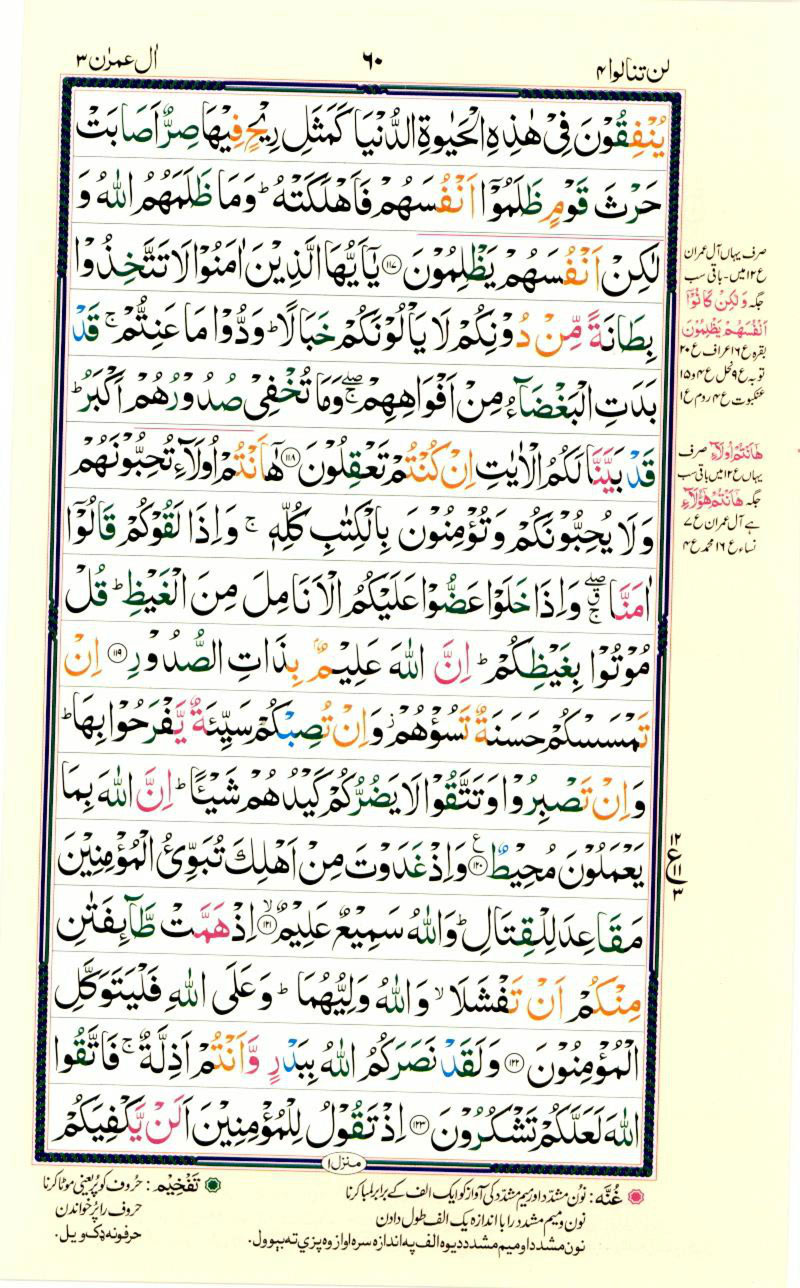 لن تنالوا ۴
۶۰
اٰل عمرٰن ۳
يُنْفِقُوْنَ فِيْ هٰذِهِ الْحَيٰوةِ الدُّنْيَا كَمَثَلِ رِيْحٍ فِيْهَا صِرٌّ اَصَابَتْ
حَرْثَ قَوْمٍ ظَلَمُوْۤا اَنْفُسَهُمْ فَاَهْلَكَتْهُ ؕ وَمَا ظَلَمَهُمُ اللّٰهُ وَ
لٰكِنْ اَنْفُسَهُمْ يَظْلِمُوْنَ ﴿۱۱۷﴾ يٰۤاَيُّهَا الَّذِيْنَ اٰمَنُوْا لَا تَتَّخِذُوْا
بِطَانَةً مِّنْ دُوْنِكُمْ لَا يَاْلُوْنَكُمْ خَبَالًا ؕ وَدُّوْا مَا عَنِتُّمْ ۚ قَدْ
بَدَتِ الْبَغْضَآءُ مِنْ اَفْوَاهِهِمْ ۖۚ وَمَا تُخْفِيْ صُدُوْرُهُمْ اَكْبَرُ ؕ
قَدْ بَيَّنَّا لَكُمُ الْاٰيٰتِ اِنْ كُنْتُمْ تَعْقِلُوْنَ ﴿۱۱۸﴾ هٰۤاَنْتُمْ اُولَآءِ تُحِبُّوْنَهُمْ
وَلَا يُحِبُّوْنَكُمْ وَتُؤْمِنُوْنَ بِالْكِتٰبِ كُلِّهٖ ۚ وَاِذَا لَقُوْكُمْ قَالُوْۤا
اٰمَنَّا ۖۗۚ وَاِذَا خَلَوْا عَضُّوْا عَلَيْكُمُ الْاَنَامِلَ مِنَ الْغَيْظِ ؕ قُلْ
مُوْتُوْا بِغَيْظِكُمْ ؕ اِنَّ اللّٰهَ عَلِيْمٌۢ بِذَاتِ الصُّدُوْرِ ﴿۱۱۹﴾ اِنْ
تَمْسَسْكُمْ حَسَنَةٌ تَسُؤْهُمْ ؗ وَاِنْ تُصِبْكُمْ سَيِّئَةٌ يَّفْرَحُوْا بِهَا ؕ
وَاِنْ تَصْبِرُوْا وَتَتَّقُوْا لَا يَضُرُّكُمْ كَيْدُهُمْ شَيْـًٔا ؕ اِنَّ اللّٰهَ بِمَا
يَعْمَلُوْنَ مُحِيْطٌ ﴿۱۲۰﴾ ع وَاِذْ غَدَوْتَ مِنْ اَهْلِكَ تُبَوِّئُ الْمُؤْمِنِيْنَ
مَقَاعِدَ لِلْقِتَالِ ؕ وَاللّٰهُ سَمِيْعٌ عَلِيْمٌ ﴿۱۲۱﴾ ۙ اِذْ هَمَّتْ طَّآئِفَتٰنِ
مِنْكُمْ اَنْ تَفْشَلَا ۙ وَاللّٰهُ وَلِيُّهُمَا ؕ وَعَلَى اللّٰهِ فَلْيَتَوَكَّلِ
الْمُؤْمِنُوْنَ ﴿۱۲۲﴾ وَلَقَدْ نَصَرَكُمُ اللّٰهُ بِبَدْرٍ وَّاَنْتُمْ اَذِلَّةٌ ۚ فَاتَّقُوا
اللّٰهَ لَعَلَّكُمْ تَشْكُرُوْنَ ﴿۱۲۳﴾ اِذْ تَقُوْلُ لِلْمُؤْمِنِيْنَ اَلَنْ يَّكْفِيَكُمْ
صرف یہاں آل عمران
ع۱۲ میں۔ باقی سب
جگہ وَلٰكِنْ كَانُوْۤا
اَنْفُسَهُمْ يَظْلِمُوْنَ
بقرہ ع۱۶ اعراف ع۲۰
توبہ ع۹ نحل ع۴ و ۱۵
عنکبوت ع۴ روم ع۱
هٰۤاَنْتُمْ اُولَآءِ صرف
یہاں ع۱۲ میں باقی سب
جگہ هٰۤاَنْتُمْ هٰۤؤُلَآءِ
ہے آل عمران ع۷
نساء ع۱۶ محمد ع۴
۱۲
ع
۱۱
۳
منزل ۱
غُنَّه: نُون مشدّد اور میم مشدّد کی آواز کو ایک الف کے برابر لمبا کرنا
نون و میم مشدد را با اندازہ یک الف طول دادن
نون مشدد او میم مشدد دیوہ الف پہ اندازہ سرہ اواز وہ پزې تہ بېوول.
تَفْخِيْم: حُروف کو پُر یعنی موٹا کرنا
حروف را پُر خواندن
حرفونه ډک ویل.